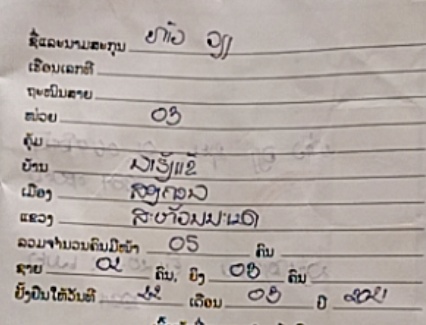 ຊື່ແລະນາມສະກຸນ ທ້າວ
ເຮືອນເລກທີ
ຖະໜົນສາຍ
ໜ່ວຍ 03
ຄຸ້ມ
ບ້ານ
ເມືອງ ສອງຄອນ
ແຂວງ ສະຫວັນນະເຂດ
ລວມຈຳນວນຄົນມີໜ້າ 05 ຄົນ
ຊາຍ 02 ຄົນ, ຍິງ 03 ຄົນ
ຢັ້ງຢືນໃຫ້ວັນທີ 22 ເດືອນ 03 ປີ